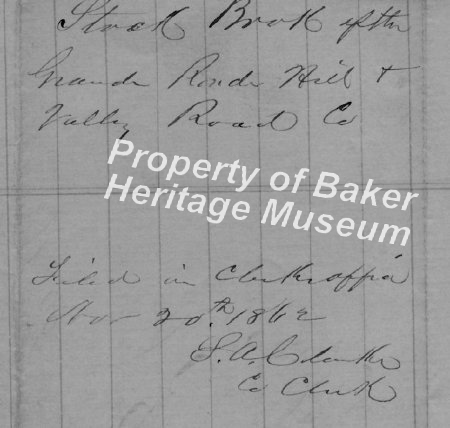 Stock Book of the
Grande Ronde Hill &
Valley Road Co
Property of Baker
Heritage Museum
Filed in Clerks office
Nov 20th 1862
S. A. Clarke
Co Clerk